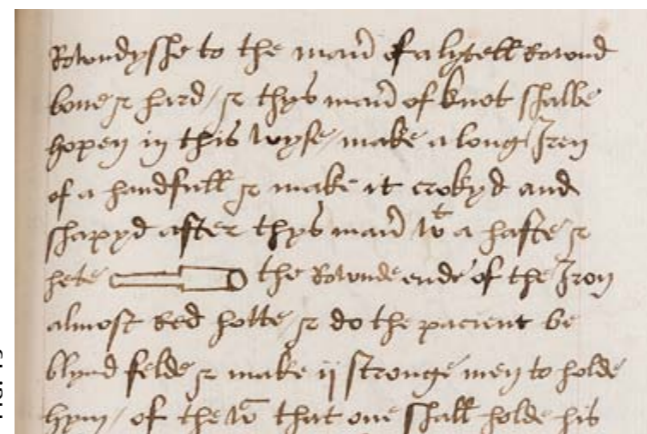 Rowndysshe to the man̄ of a lytell Rownd
bone & hard / & thys man̄ of knot shalbe
hopen in this wyse / make a long Iren
of a handfull & make it crokyd and
shapyd after thys man̄ wt a hafte &
hete the Rownde ende of the Iron
almost Red hotte & do the pacient be
blynd felde & make ij stronge men to holde
hym / of the wt that one shall holde his